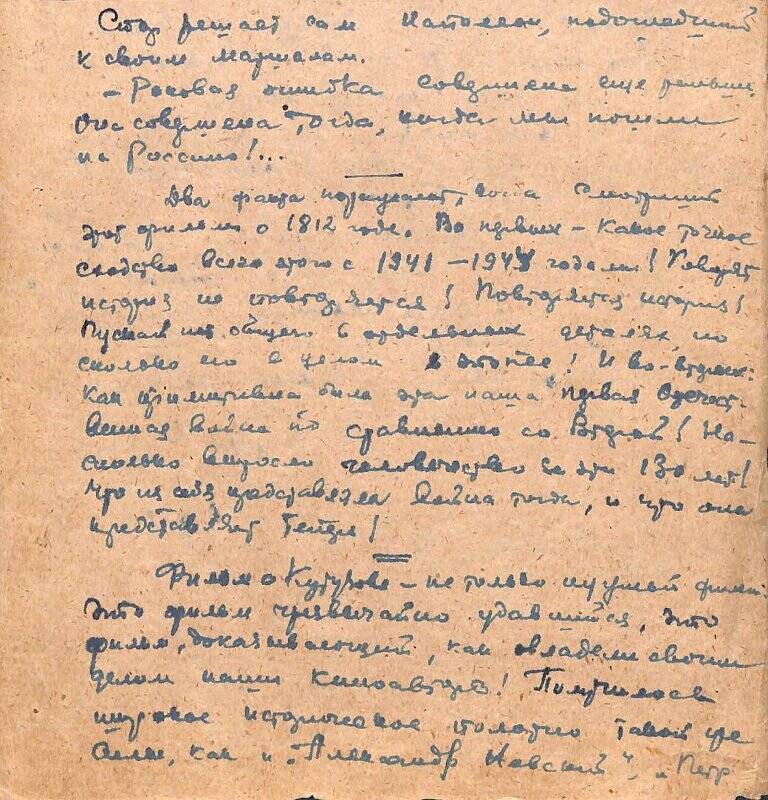 Спор решает сам Наполеон, подошедший
к своим маршалам.
– Роковая ошибка совершена еще раньше.
Она совершена тогда, когда мы пошли
на Россию!...
Два факта поражают, когда смотришь
этот фильм о 1812 годе. Во первых – какое точное
сходство всего этого с 1941 – 1944 годами! Говорят
история не повторяется! Повторяется история!
Пускай нет общего в отдельных деталях, но
сколько его в целом в итоге! И во-вторых:
как примитивна была эта наша первая Отечест-
венная война по сравнению со Второй! На-
сколько выросло человечество за эти 130 лет!
Что из себя представляла война тогда, и что она
представляет теперь!
Фильм о Кутузове – не только нужный фильм.
Это фильм чрезвычайно удавшийся, это
фильм, доказывающий, как овладели своим
делом наши киноавторы! Получилось
широкое историческое полотно такой же
силы, как и „Александр Невский", „Петр